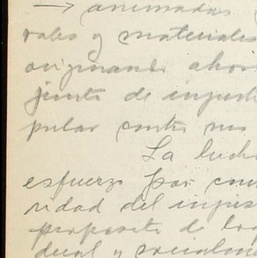 → animadas
rales y materiales
originando ahor
junta de injust
pular contra nos
La lucha
esfuerzo por con
ridad del impes
proposito de lo
dual y social